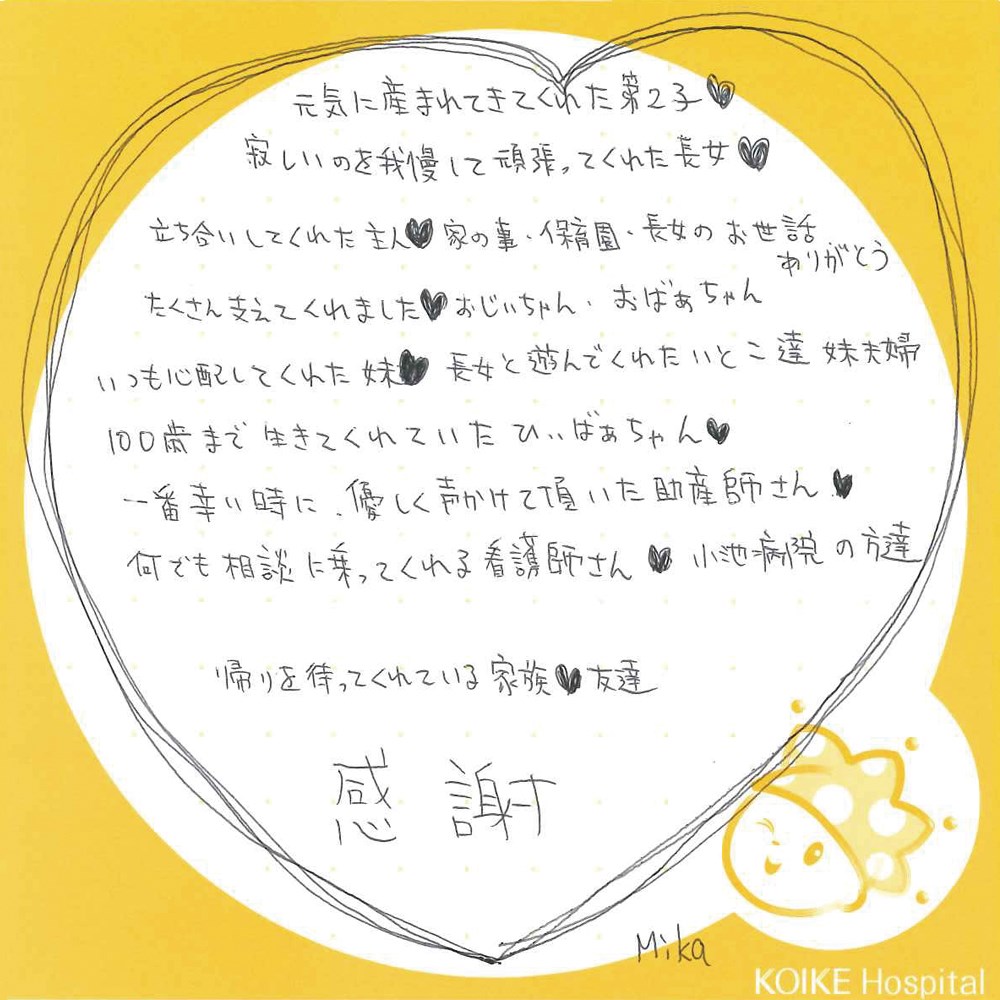 元気に産まれてきてくれた第2子♥
寂しいのを我慢して頑張ってくれた長女♥
立ち合いしてくれた主人♥家の事・保育園・長女のお世話
ありがとう
たくさん支えてくれました♥おじぃちゃん・おばぁちゃん
いつも心配してくれた妹♥長女と遊んでくれたいとこ達 妹夫婦
100歳まで生きてくれていたひぃばぁちゃん♥
一番辛い時に、優しく声かけて頂いた助産師さん♥
何でも相談に乗ってくれる看護師さん♥小池病院の方達
帰りを待ってくれている家族♥友達
感謝
Mika
KOIKE Hospital